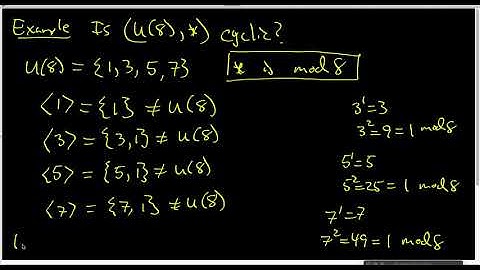 Example Is (U(8), *) cyclic?
U(8) = {1, 3, 5, 7}
* is mod 8
⟨1⟩ = {1} ≠ U(8)
⟨3⟩ = {3,1} ≠ U(8)
⟨5⟩ = {5,1} ≠ U(8)
⟨7⟩ = {7,1} ≠ U(8)
3¹=3
3²=9=1 mod 8
5¹=5
5²=25=1 mod 8
7¹=7
7²=49=1 mod 8